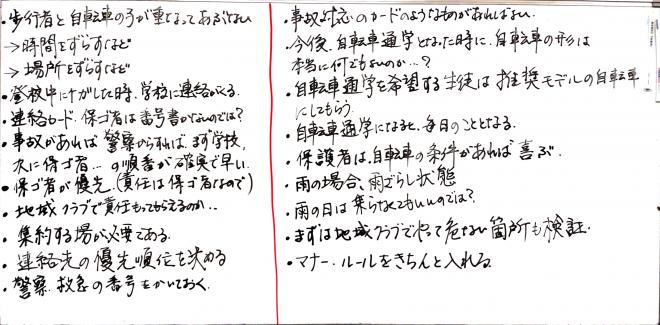 ・歩行者と自転車の子が重なってあぶない
→時間をずらすなど
→場所をずらすなど
・登校中にケガした時、学校に連絡がくる。
・連絡カード、保ゴ者は番号書かないのでは?
・事故があれば警察からすれば、まず学校、
次に保ゴ者…の順番が確実で早い。
・保ゴ者が優先。(責任は保ゴ者なので)
・地域クラブで責任もってもらえるのか…
・集約する場が必要である。
・連絡先の優先順位を決める
・警察、救急の番号をかいておく。
・事故対応のカードのようなものがあればよい。
・今後、自転車通学となった時に、自転車の形は
本当に何でもよいのか…?
・自転車通学を希望する生徒は推奨モデルの自転車
にしてもらう。
・自転車通学になると、毎日のこととなる。
・保護者は、自転車の条件があれば喜ぶ。
・雨の場合、雨ざらし状態
・雨の日は乗らなくてもいいのでは?
・まずは地域クラブで使って危ない箇所も検証
・マナー・ルールをきちんと入れる